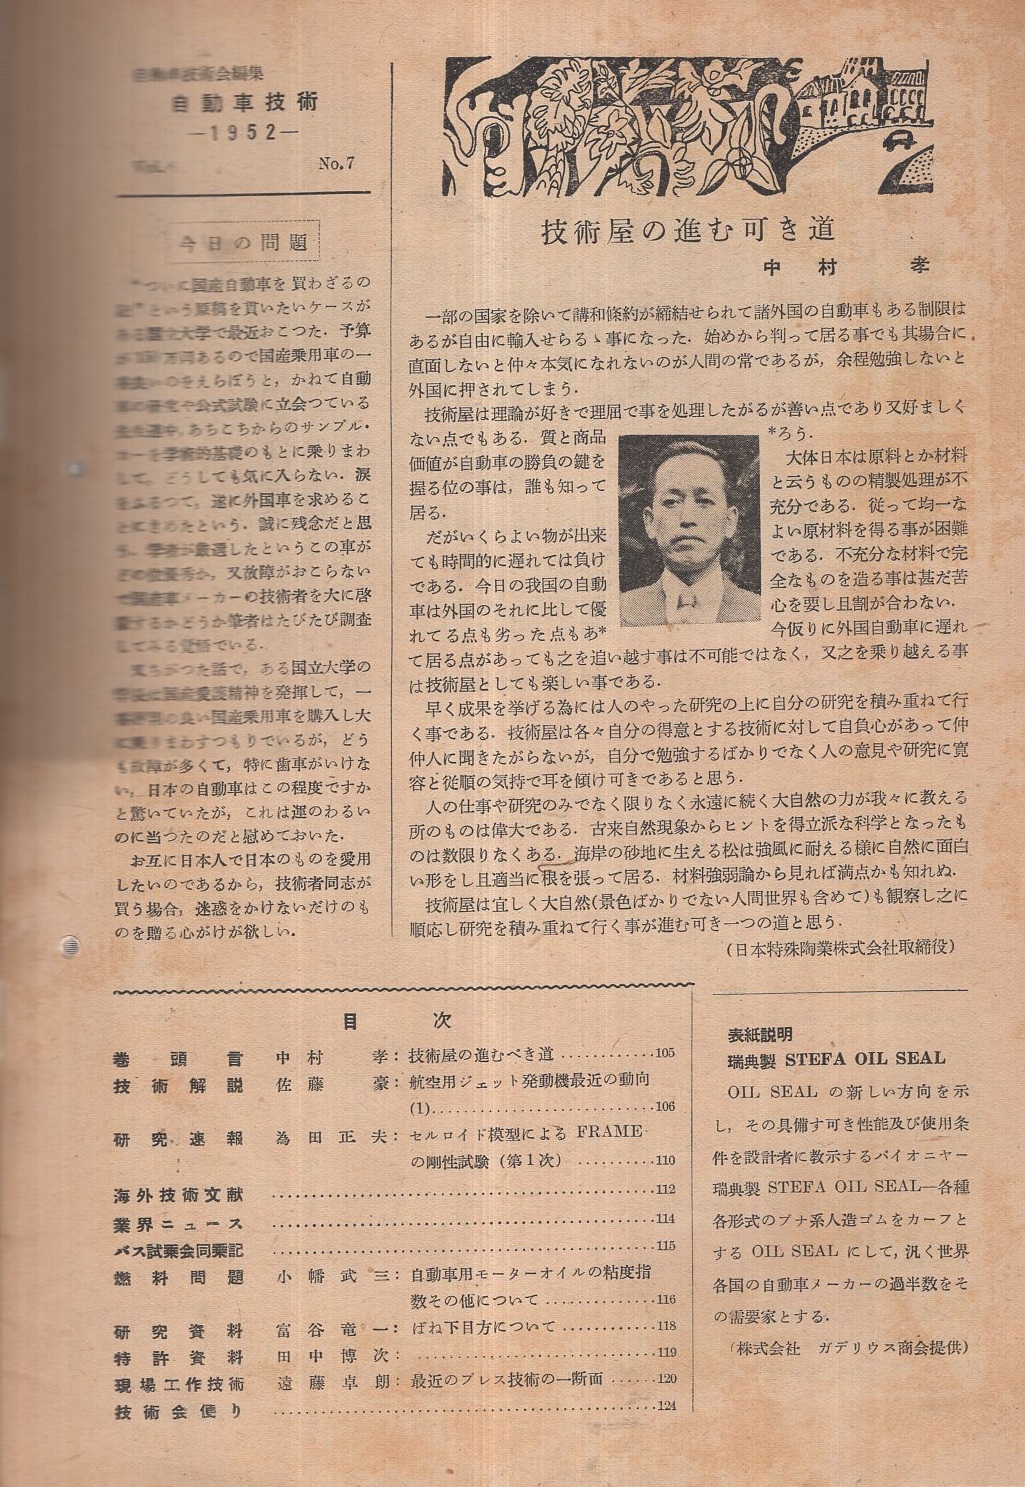 自動車技術会編集
自動車技術
—1952—
No.7
今日の問題
ついに国産自動車を買わざるの
という原稿を貰いたいケースが
大学で最近おこつた．予算
万円あるので国産乗用車の一
のをえらぼうと，かねて自動
研究や公式試験に立会つている
あちこちからのサンプル・
カーを学術的基礎のもとに乗りまわ
して，どうしても気に入らない．涙
をふるつて，遂に外国車を求めるこ
とにきめたという．誠に残念だと思
う．学者が厳選したというこの車が
又故障がおこらない
で国産車メーカーの技術者を大に啓
するかどうか筆者はたびたび調査
してみる覚悟でいる．
変ちがつた話で，ある国立大学の
国産愛護精神を発揮して，一
の良い国産乗用車を購入し大
に乗りまわすつもりでいるが，どう
も故障が多くて，特に歯車がいけな
い，日本の自動車はこの程度ですか
と驚いていたが，これは運のわるい
のに当つたのだと慰めておいた．
お互に日本人で日本のものを愛用
したいのであるから，技術者同志が
買う場合，迷惑をかけないだけのも
のを贈る心がけが欲しい．
技術屋の進む可き道
中村　孝
一部の国家を除いて講和條約が締結せられて諸外国の自動車もある制限は
あるが自由に輸入せらるゝ事になった．始めから判って居る事でも其場合に
直面しないと仲々本気になれないのが人間の常であるが，余程勉強しないと
外国に押されてしまう．
技術屋は理論が好きで理屈で事を処理したがるが善い点であり又好ましく
ない点でもある．質と商品
価値が自動車の勝負の鍵を
握る位の事は，誰も知って
居る．
だがいくらよい物が出来
ても時間的に遅れては負け
である．今日の我国の自動
車は外国のそれに比して優
れてる点も劣った点もあ*
*ろう．
大体日本は原料とか材料
と云うものの精製処理が不
充分である．従って均一な
よい原材料を得る事が困難
である．不充分な材料で完
全なものを造る事は甚だ苦
心を要し且割が合わない．
今仮りに外国自動車に遅れ
て居る点があっても之を追い越す事は不可能ではなく，又之を乗り越える事
は技術屋としても楽しい事である．
早く成果を挙げる為には人のやった研究の上に自分の研究を積み重ねて行
く事である．技術屋は各々自分の得意とする技術に対して自負心があって仲
仲人に聞きたがらないが，自分で勉強するばかりでなく人の意見や研究に寛
容と従順の気持で耳を傾け可きであると思う．
人の仕事や研究のみでなく限りなく永遠に続く大自然の力が我々に教える
所のものは偉大である．古来自然現象からヒントを得立派な科学となったも
のは数限りなくある．海岸の砂地に生える松は強風に耐える様に自然に面白
い形をし且適当に根を張って居る．材料強弱論から見れば満点かも知れぬ．
技術屋は宜しく大自然(景色ばかりでない人間世界も含めて)も観察し之に
順応し研究を積み重ねて行く事が進む可き一つの道と思う．
（日本特殊陶業株式会社取締役）
目次
巻頭言　中村　孝：技術屋の進むべき道…………105
技術解説　佐藤　豪：航空用ジェット発動機最近の動向
(1)……………………106
研究速報　為田正夫：セルロイド模型による FRAME
の剛性試験（第1次）…………110
海外技術文献……………………112
業界ニュース……………………114
バス試乗会同乗記……………………115
燃料問題　小幡武三：自動車用モーターオイルの粘度指
数その他について…………116
研究資料　富谷竜一：ばね下目方について…………118
特許資料　田中博次：……………………119
現場工作技術　遠藤卓朗：最近のプレス技術の一断面……120
技術会便り……………………124
表紙説明
瑞典製 STEFA OIL SEAL
OIL SEAL の新しい方向を示
し，その具備す可き性能及び使用条
件を設計者に教示するパイオニヤー
瑞典製 STEFA OIL SEAL—各種
各形式のブナ系人造ゴムをカーフと
する OIL SEAL にして，汎く世界
各国の自動車メーカーの過半数をそ
の需要家とする．
（株式会社　ガデリウス商会提供）